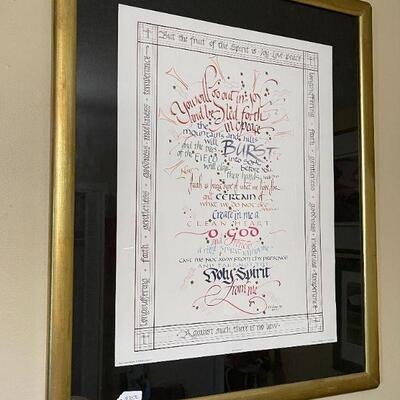 But the fruit of the Spirit is joy love peace
longsuffering · faith · gentleness · goodness · meekness · temperance
longsuffering · faith · gentleness · goodness · meekness · temperance
You will go out in joy
and be led forth
in peace
the
mountains and hills
will BURST
into song
before you
and the trees
of the FIELD
will clap
their hands
Now
faith is being sure of what we hope for
and CERTAIN of
what we do not see
Create in me a
CLEAN HEART
O GOD
and renew
a right Spirit within me
CAST ME NOT AWAY FROM THY PRESENCE
AND TAKE NOT THY
Holy Spirit
from me
Against such there is no law